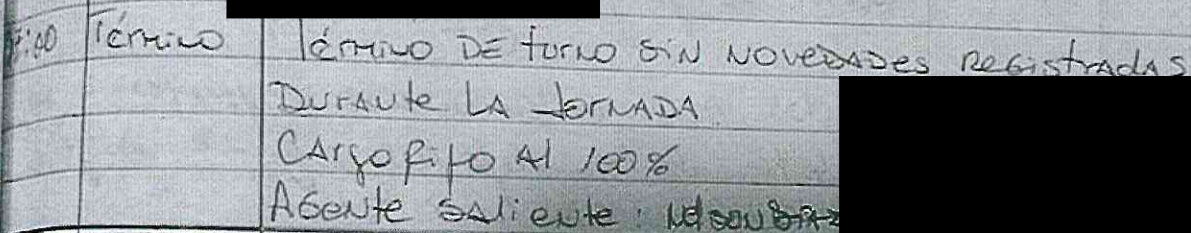 Término Término DE turno SiN NOVEDADes RegistrAdAS
DurANte LA JorNADA
CArgo fijo Al 100%
AGeNte SALieNte: NelsoN